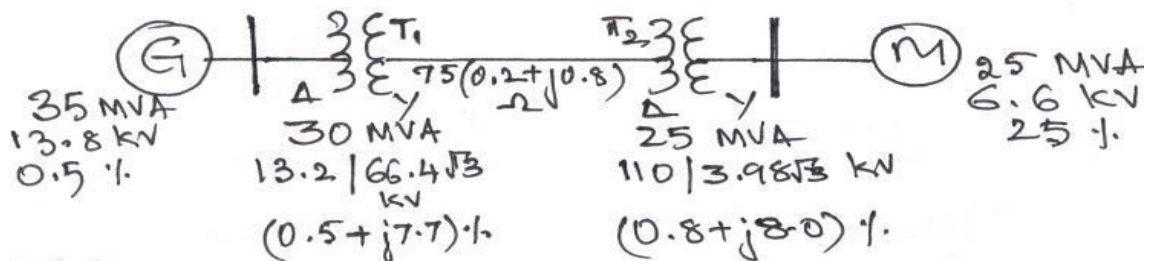 G T₁ T₂ M
75(0.2+j0.8) Ω
Δ Y Δ Y
35 MVA
13.8 KV
0.5 %
30 MVA
13.2 | 66.4√3
KV
(0.5+j7.7)%
25 MVA
110 | 3.98√3 KV
(0.8+j8.0) %
25 MVA
6.6 KV
25 %